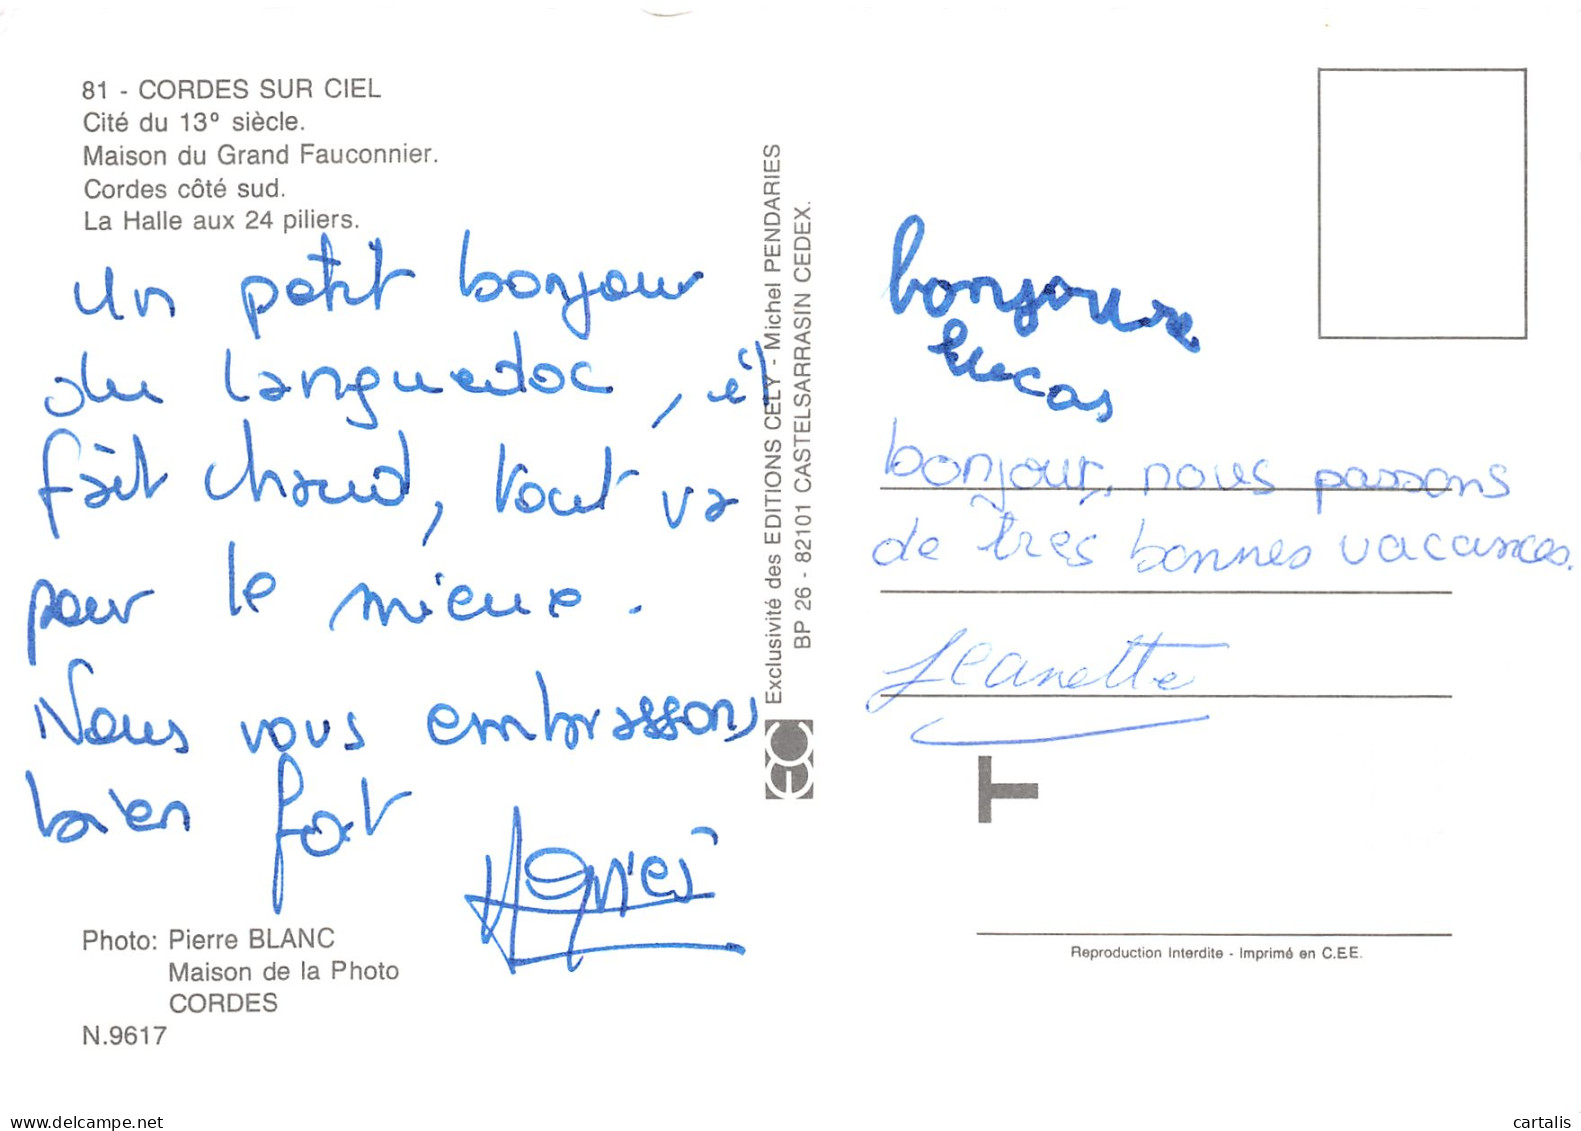 81 - CORDES SUR CIEL
Cité du 13º siècle.
Maison du Grand Fauconnier.
Cordes côté sud.
La Halle aux 24 piliers.
Un petit bonjour
du languedoc, il
fait chaud, tout va
pour le mieux.
Nous vous embrassons
bien fort
Agnès
Photo: Pierre BLANC
Maison de la Photo
CORDES
N.9617
Exclusivité des EDITIONS CELY - Michel PENDARIES
BP 26 - 82101 CASTELSARRASIN CEDEX.
bonjour
Lucas
bonjour, nous passons
de très bonnes vacances.
Jeanette
T
Reproduction Interdite - Imprimé en C.E.E.
www.delcampe.net
cartalis